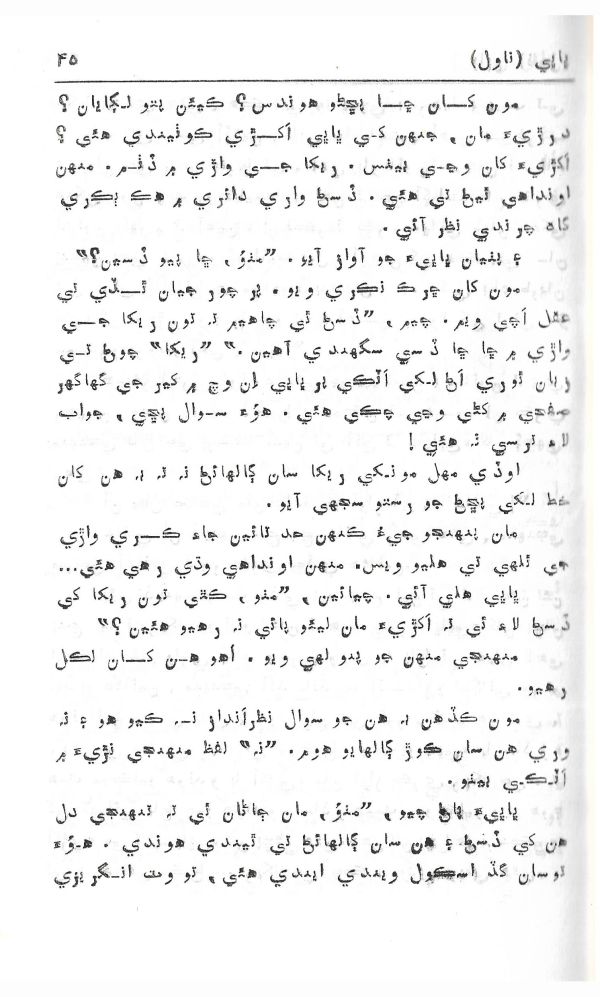 ڀاڀي (ناول) ۴۵
مون کان ڇا پڇڻو هوندس؟ ڪيئن پتو لڳايان؟
درڙيءَ مان، جنهن کي ڀاڀي اَکڙي ڪوٺيندي هئي؟
اَکڙيءَ کان وڃي بيٺس. ريکا جي واڙي ۾ ڏٺم. منهن
اونداهي ٿيڻ تي هئي. ڏسڻ واري دائري ۾ هڪ ٻڪري
گاهه چرندي نظر آئي.
۽ پٺيان ڀاڀيءَ جو آواز آيو. ”منوُ، ڇا پيو ڏسين؟“
مون کان ڇرڪ نڪري ويو. پر چور جيان ٿڏي تي
عقل اچي ويم. چيم، ”ڏسڻ ئي چاهيم ته تون ريکا جي
واڙي ۾ ڇا ڇا ڏسي سگهندي آهين.“ ”ريکا“ چوڻ تي
زبان ٿوري اڻ لکي اٽڪي پر ڀاڀي اِن وچ ۾ کير جي گهاگهر
صفحي ۾ کڻي وڃي چڪي هئي. هوءَ سوال پڇي، جواب
لاءِ ترسي نه هئي!
اوڏي مهل مونکي ريکا سان ڳالهائڻ نه ته به هن کان
خط لکي پڇڻ جو رستو سجهي آيو.
مان پنهنجو جيءُ ڪنهن حد تائين جاءِ ڪري واڙي
جي ٿلهي تي هليو ويس. منهن اونداهي وڌي رهي هئي...
ڀاڀي هلي آئي. چيائين، ”منو، ڪٿي تون ريکا کي
ڏسڻ لاءِ ئي ته اَکڙيءَ مان ليئو پائي نه رهيو هئين؟“
منهنجي منهن جو پنو لهي ويو. اُهو هن کان لڪل
رهيو.
مون ڪڏهن به هن جو سوال نظرانداز نه ڪيو هو ۽ نه
وري هن سان ڪوڙ ڳالهايو هوم. ”نه“ لفظ منهنجي نڙيءَ ۾
اٽڪي بيٺو.
ڀاڀيءَ پاڻ چيو، ”منوُ، مان ڄاڻان ٿي ته تنهنجي دل
هن کي ڏسڻ ۽ هن سان ڳالهائڻ تي ٿيندي هوندي. هوءَ
توسان گڏ اسڪول ويندي ايندي هئي، تو وٽ انگريزي